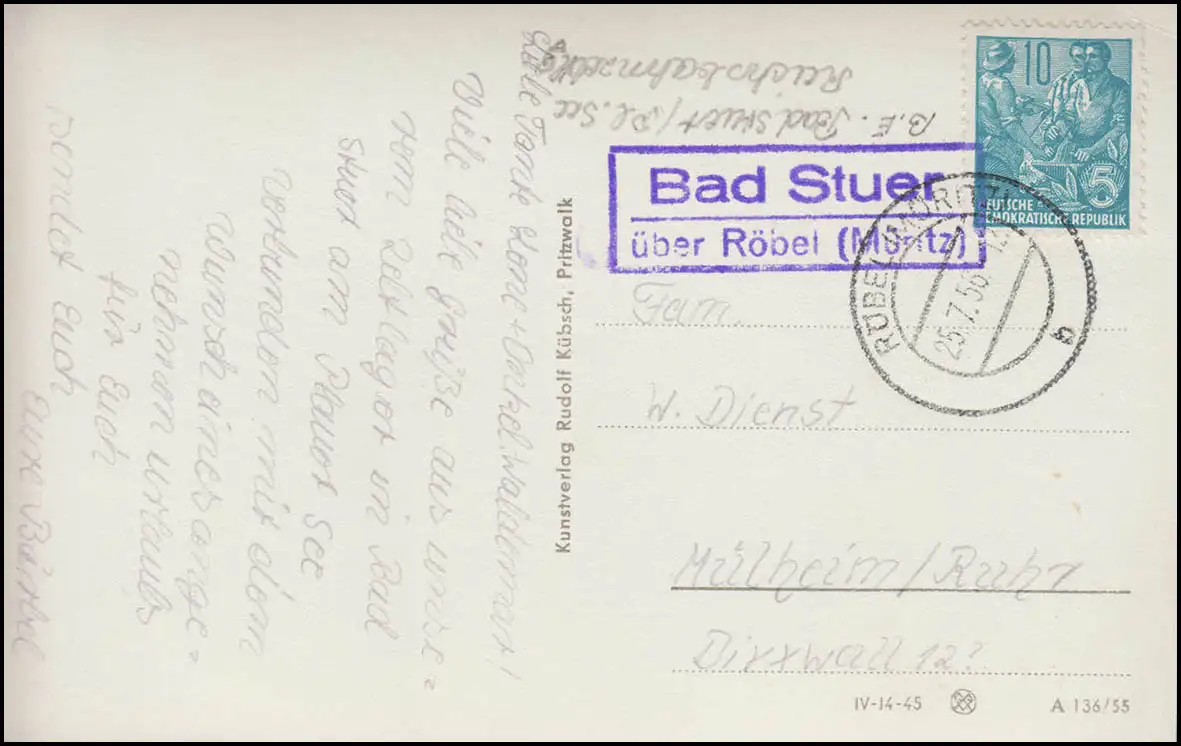 Liebe Tante Lene + Onkel Waldemar!
Viele liebe Grüße aus unse=
rem Zeltlager in Bad
Stuer am Plauer See
Verbunden mit dem
Wunsch eines ange=
nehmen Urlaubs
für Euch
sendet Euch
Eure Bärbel
B.E. Bad Stuer/Pl. See
Kunstverlag Rudolf Kübsch, Pritzwalk
10
5
DEUTSCHE
DEMOKRATISCHE REPUBLIK
Bad Stuer
über Röbel (Müritz)
RÖBEL (MÜRITZ)
25.7.56
b
Fam.
W. Dienst
Mülheim/Ruhr
12?
IV-14-45
A 136/55